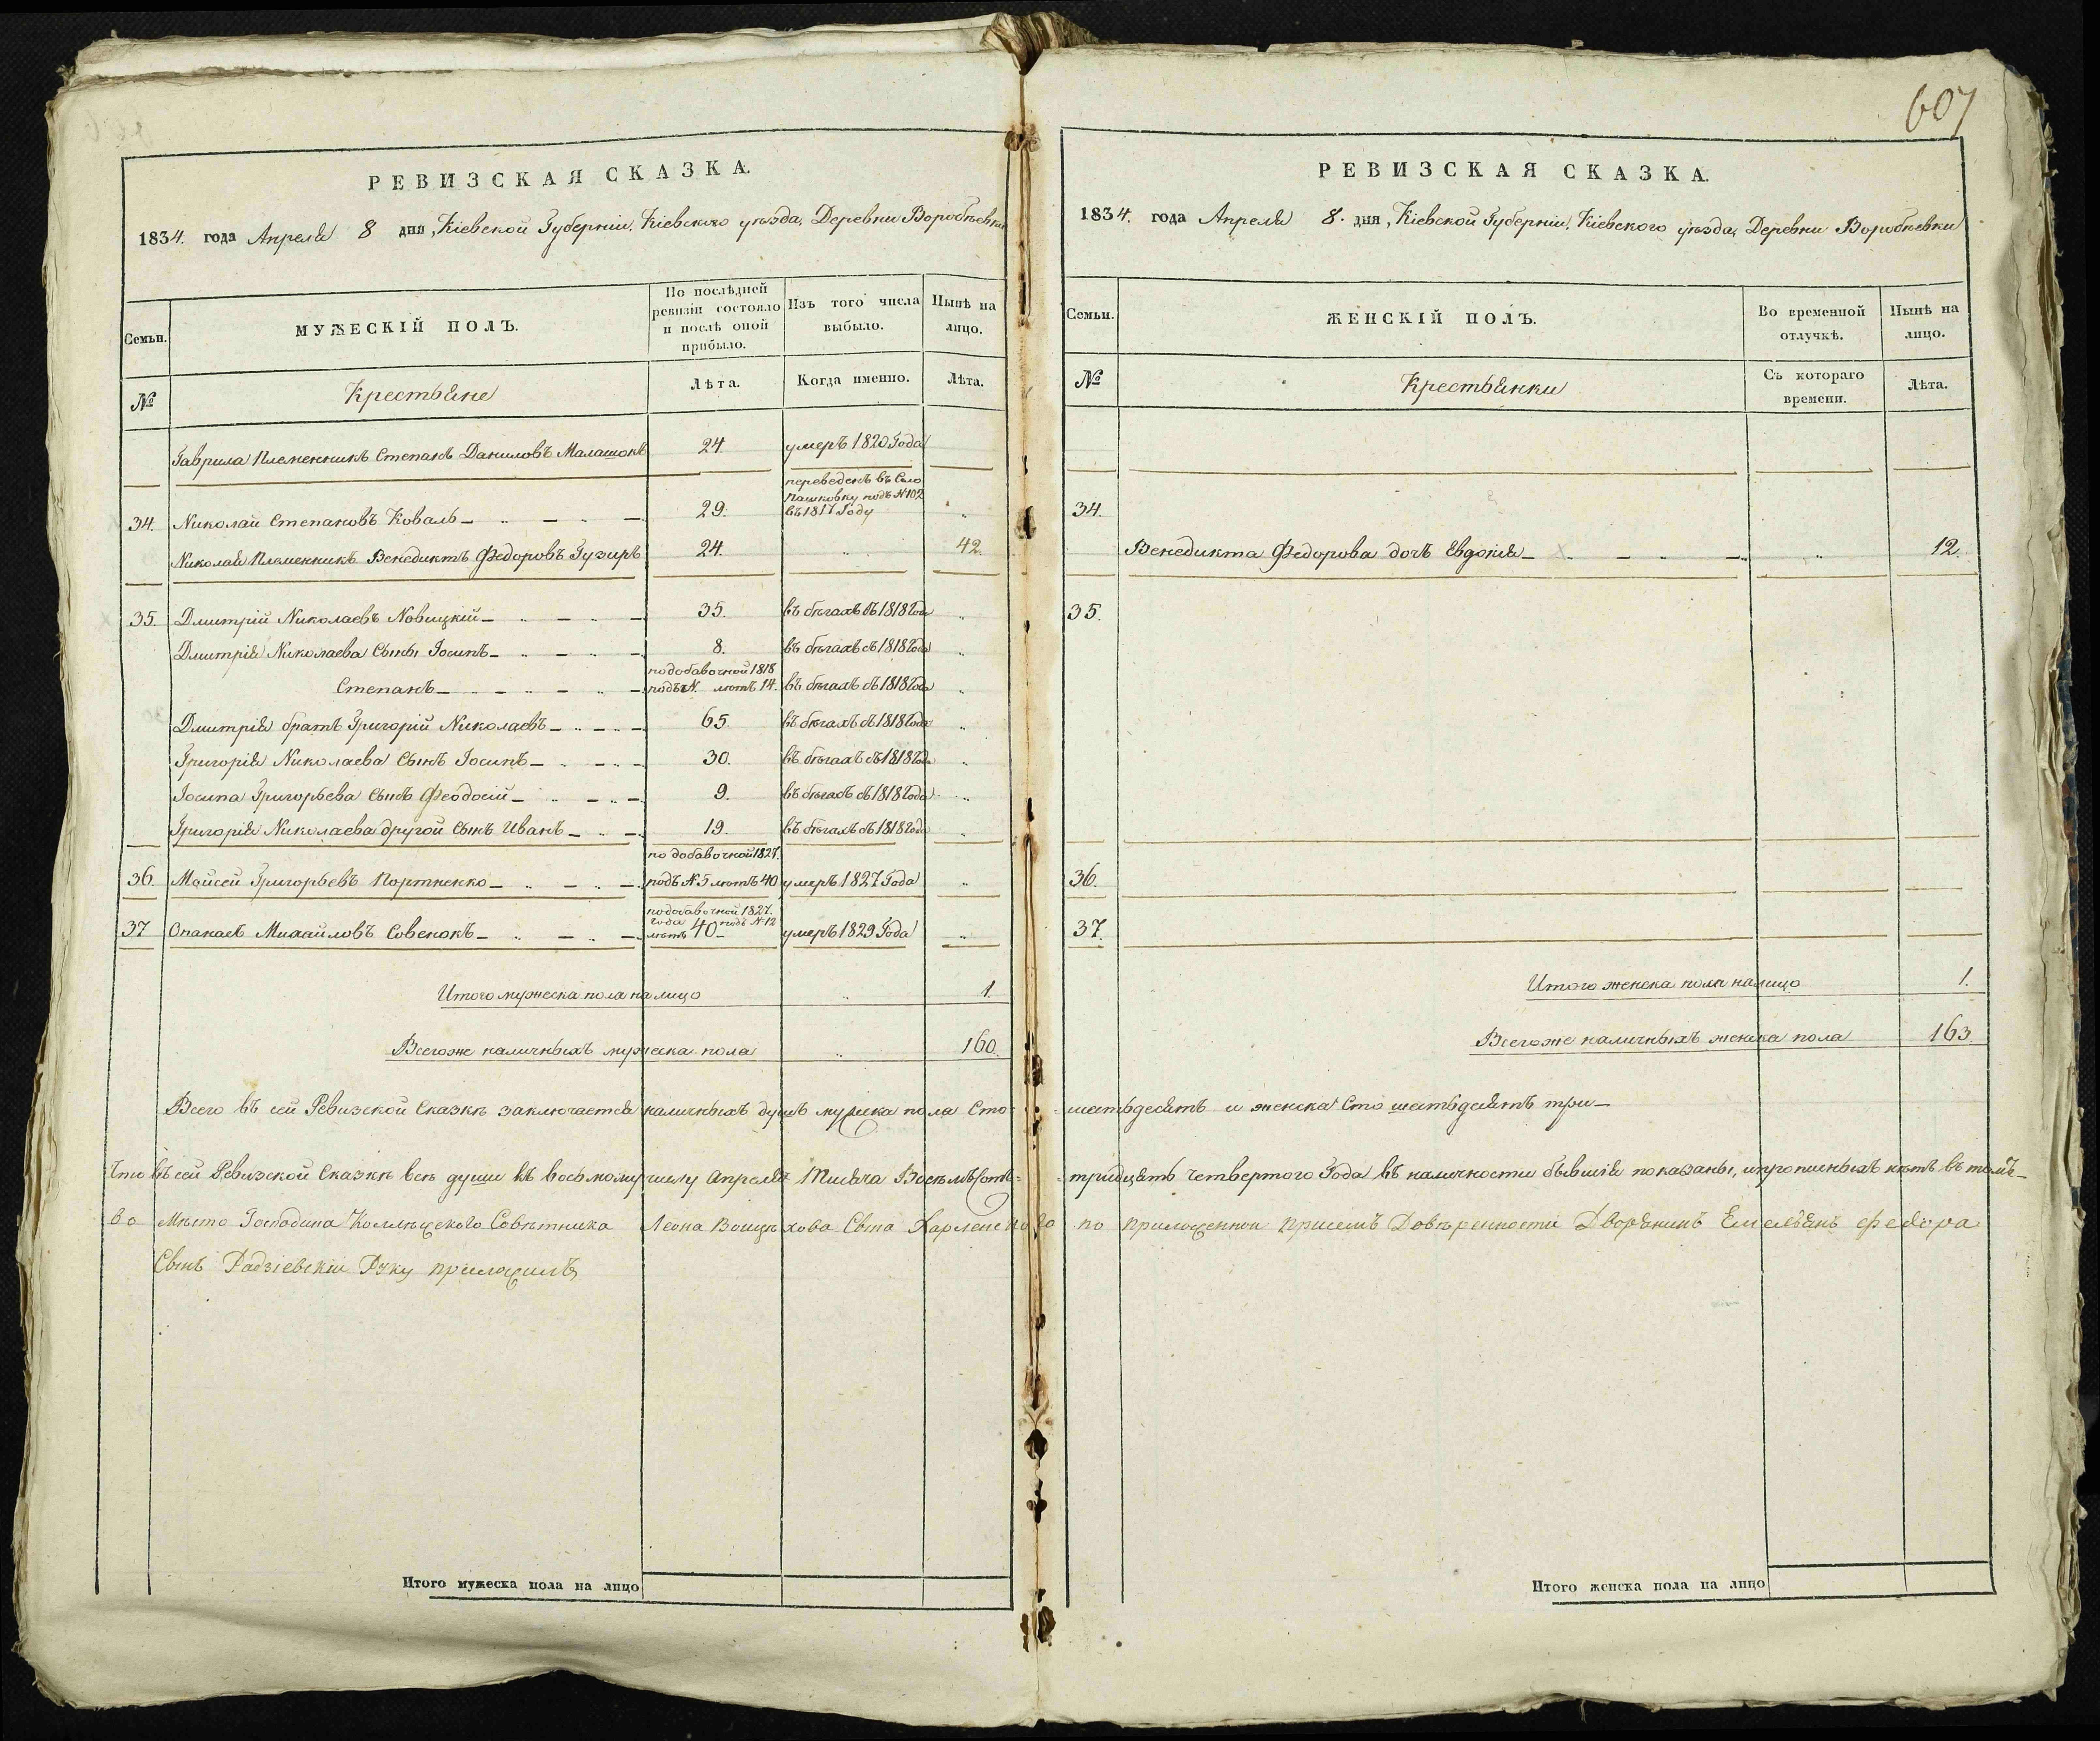 607
РЕВИЗСКАЯ СКАЗКА.
1834. года Апреля 8 дня, Кіевской Губерніи, Кіевского уѣзда, Деревни Воробьевки
Семьи.
МУЖЕСКІЙ ПОЛЪ.
По послѣдней ревизіи состояло и послѣ оной прибыло.
Изъ того числа выбыло.
Нынѣ на лицо.
№
Крестьяне
Лѣта.
Когда именно.
Лѣта.
Гаврила Племенникъ Степанъ Даниловъ Малашокъ 24. умеръ 1820 Года
переведенъ въ Село
Пашковку подъ №102
34. Николай Степановъ Коваль — „ — „ — 29. въ 1817 Году „
Николая Племенникъ Венедиктъ Федоровъ Гузирь 24. „ 42.
35. Дмитрій Николаевъ Новицкій — „ — „ — 35. въ бѣгахъ съ 1818 Года „
Дмитрія Николаева Сыны Іосипъ — „ — „ — 8. въ бѣгахъ съ 1818 Года „
по добавочной 1818
Степанъ — „ — „ — „ — подъ № лѣтъ 14. въ бѣгахъ съ 1818 Года „
Дмитрія братъ Григорій Николаевъ — „ — „ — 65. въ бѣгахъ съ 1818 Года „
Григорія Николаева Сынъ Іосипъ — „ — „ — 30. въ бѣгахъ съ 1818 Года „
Іосипа Григорьева Сынъ Феодосій — „ — „ — 9. въ бѣгахъ съ 1818 Года „
Григорія Николаева другой Сынъ Иванъ — „ — 19. въ бѣгахъ съ 1818 Года „
по добавочной 1827.
36. Мойсей Григорьевъ Портненко — „ — „ — подъ №5 лѣтъ 40 умеръ 1827 Года „
по добавочной 1827.
года подъ №12
37 Опанасъ Михайловъ Совенокъ — „ — „ — лѣтъ 40 — умеръ 1829 Года „
Итого мужеска пола на лицо „ 1.
Всего же наличныхъ мужеска пола „ 160.
РЕВИЗСКАЯ СКАЗКА.
1834. года Апреля 8. дня, Кіевской Губерніи, Кіевского уѣзда, Деревни Воробьевки
Семьи.
ЖЕНСКІЙ ПОЛЪ.
Во временной отлучкѣ.
Нынѣ на лицо.
№
Крестьянки
Съ котораго времени.
Лѣта.
34.
Венедикта Федорова дочь Евдокія — „ — „ — „ 12.
35.
36.
37.
Итого женска пола на лицо 1.
Всего же наличныхъ женска пола 163.
Всего въ сей Ревизской Сказкѣ заключается наличныхъ душъ мужеска пола Сто шестьдесятъ и женска Сто шестьдесятъ три —
Что въ сей Ревизской Сказкѣ всѣ души къ восьмому числу Апреля Тысяча Восемьсотъ тридцать четвертого Года въ наличности бывшія показаны, и прописныхъ нѣтъ въ томъ —
во Мѣсто Господина Коллежского Совѣтника Леона Войцѣхова Сына по приложенной присемъ Довѣренности Дворянинъ Емельянъ Федора
Сынъ Радзіевскій Руку приложилъ
Итого мужеска пола на лицо
Итого женска пола на лицо